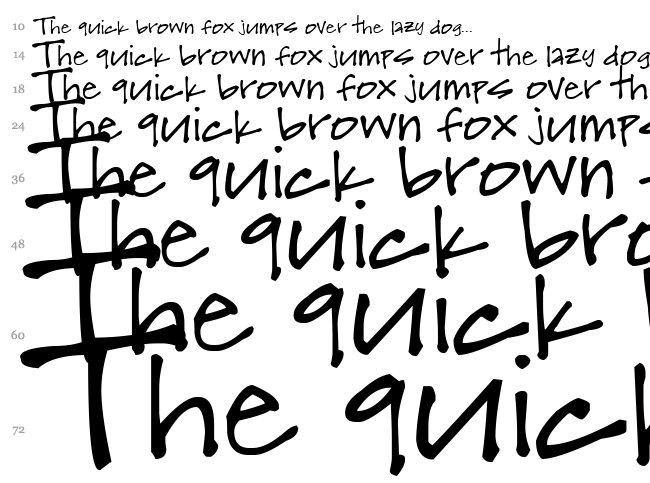 10 The quick brown fox jumps over the lazy dog...
14 The quick brown fox jumps over the lazy dog
18 The quick brown fox jumps over th
24 The quick brown fox jump
36 The quick brown
48 The quick bro
60 The quick
72 The quick